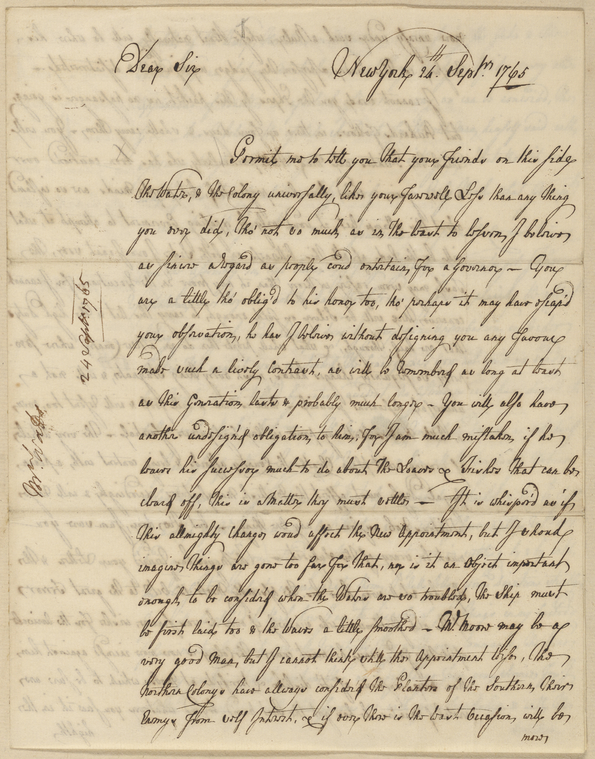 Dear Sir
New York 24th. Septr. 1765
Permit me to tell you that your friends on this side
the Water, & the Colony universally, likes your farewell Less than any thing
you ever did, tho' not so much as in the least to lessen, I believe
as sincere a Regard as people coud entertain, for a Governor – You
are a little tho' oblig'd to his honor too, tho' perhaps it may have escap'd
your observation, he has I believe without designing you any favour
made such a lively contrast, as will be remember'd as long at least
as this Generation lasts & probably much longer – You will also have
another undesign'd obligation to him, for I am much mistaken if he
leaves his Successor much to do about the fees &
that can be
clear'd off, this is a Matter they must settle – It is whisper'd as if
this allmighty change, woud affect the New Appointment, but I shoud
imagine things are gone too far for that, nor is it an object important
enough, to be consider'd when the Waters are so troubled, the Ship must
be first laid too & the Waves a little smoothed – Mr. Moore may be a
very good man, but I cannot think the Appointment wise, The
Northern Colonys have allways consider'd the Planters of the Southern, their
Enemys from self Interest, & if ever there is the least occasion, will be
more
24 Septr. 1765